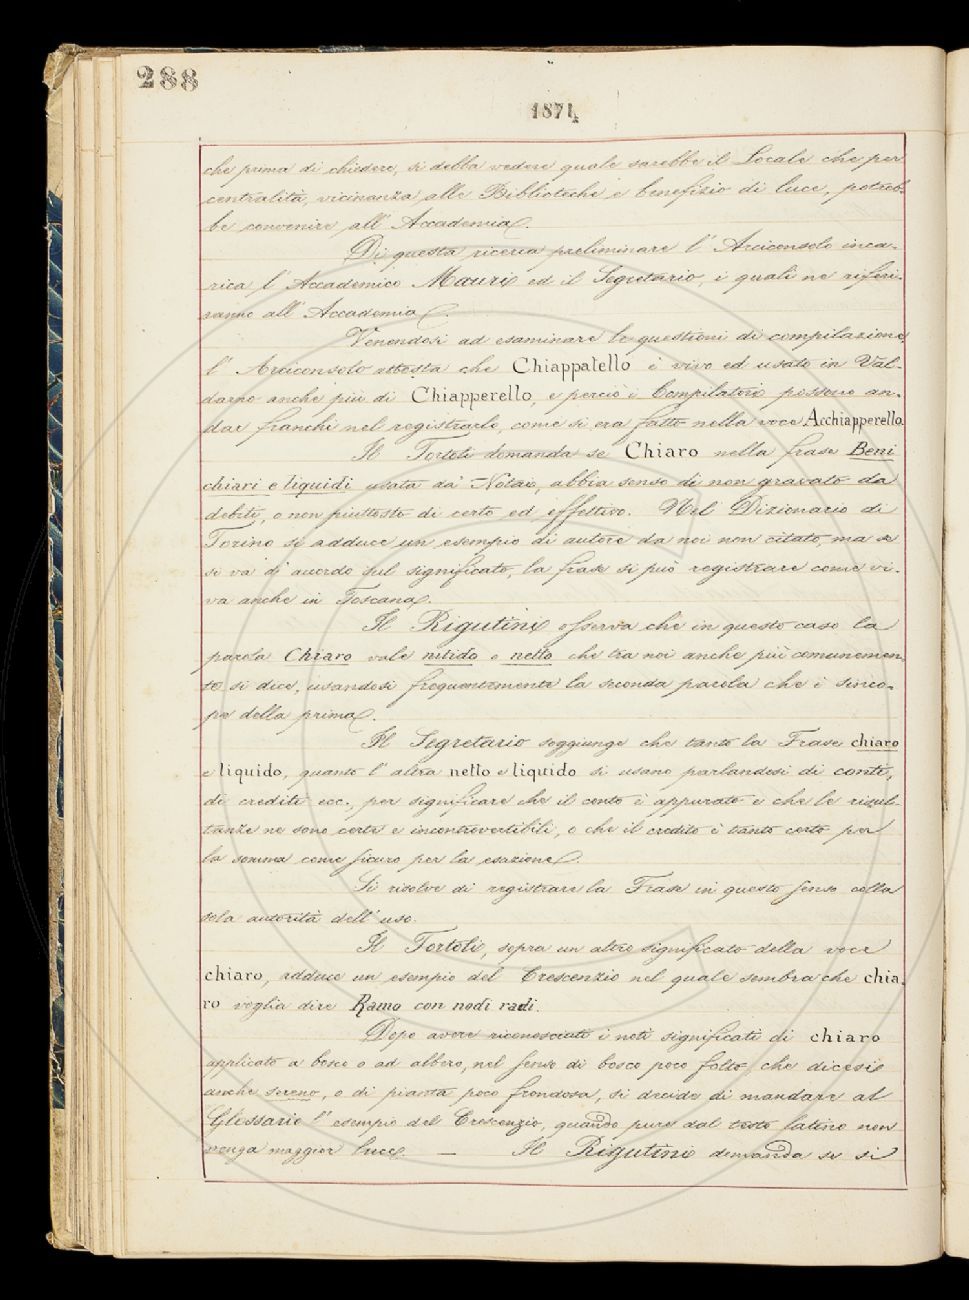 288
1871
che prima di chiedere, si debba vedere quale sarebbe il Locale che per
centralità, vicinanza alle Biblioteche e benefizio di luce, potreb-
be convenire all'Accademia.
Di questa ricerca preliminare l'Arciconsolo inca-
rica l'Accademico Mauri ed il Segretario, i quali ne riferi-
ranno all'Accademia.
Venendosi ad esaminare le questioni di compilazione
l'Arciconsolo attesta che Chiappatello è vivo ed usato in Val-
darno anche più di Chiapperello, e perciò i Compilatori possono an-
dar franchi nel registrarlo, come si era fatto nella voce Acchiapperello.
Il Tortoli domanda se Chiaro nella frase Beni
chiari e liquidi usata da' Notai, abbia senso di non gravato da
debiti, o non piuttosto di certo ed effettivo. Nel Dizionario di
Torino si adduce un esempio di autore da noi non citato, ma se
si va d'accordo sul significato, la frase si può registrare come vi-
va anche in Toscana.
Il Rigutini osserva che in questo caso la
parola Chiaro vale nitido o netto che tra noi anche più comunemen-
te si dice, usandosi frequentemente la seconda parola che è sinco-
pe della prima.
Il Segretario soggiunge che tanto la Frase chiaro
e liquido, quanto l'altra netto e liquido si usano parlandosi di conti,
di crediti ecc., per significare che il conto è appurato e che le risul-
tanze ne sono certe e incontrovertibili, o che il credito è tanto certo per
la somma come sicuro per la esazione.
Si risolve di registrare la Frase in questo senso colla
sola autorità dell'uso.
Il Tortoli, sopra un altro significato della voce
chiaro, adduce un esempio del Crescenzio nel quale sembra che chia-
ro voglia dire Ramo con nodi radi.
Dopo avere riconosciuto i noti significati di chiaro
applicato a bosco o ad albero, nel senso di bosco poco folto che dicesi
anche sereno, o di pianta poco frondosa, si decide di mandare al
Glossario l'esempio del Crescenzio, quando pure dal testo latino non
venga maggior luce. — Il Rigutini domanda se si